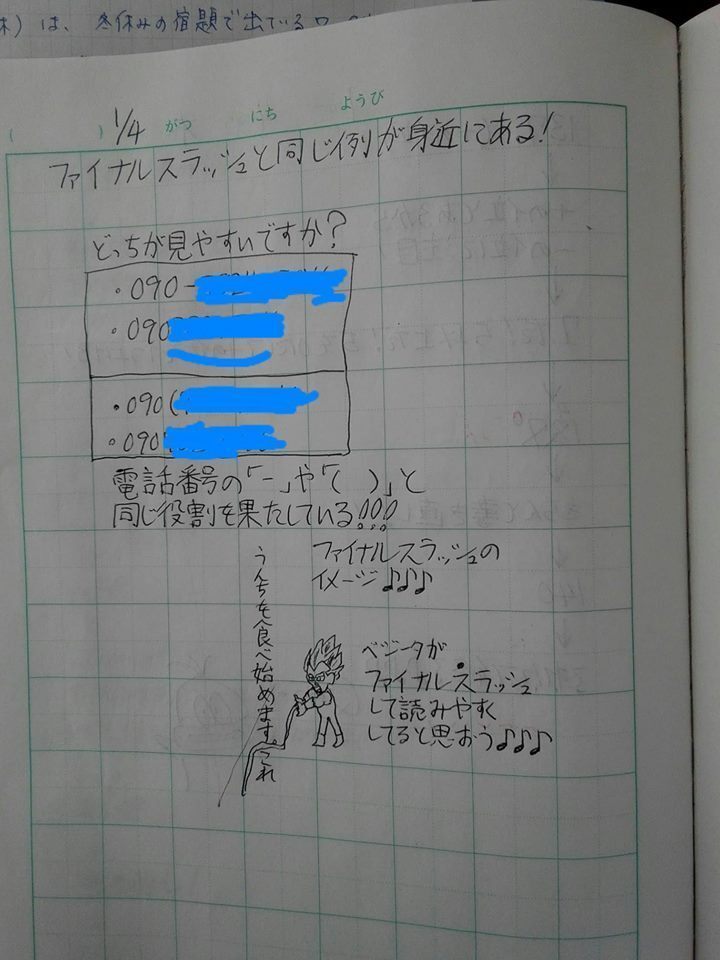 休)は、冬休みの宿題で出ている
( ) 1/4 がつ にち ようび
ファイナルスラッシュと同じ例が身近にある!
どっちが見やすいですか?
・090-
・090
・090(
・090
電話番号の「-」や「( )」と
同じ役割を果たしている!!!
ファイナルスラッシュの
イメージ♪♪♪
うんちを食べ始めます。これ
ベジータが
ファイナルスラッシュ
して読みやすく
してると思おう♪♪♪